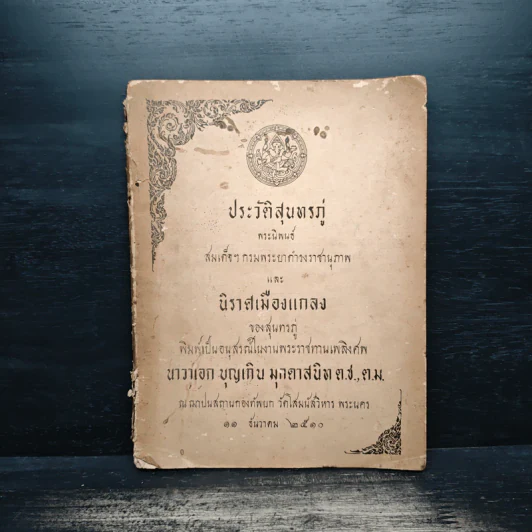 ประวัติสุนทรภู่
พระนิพนธ์
สมเด็จฯ กรมพระยาดำรงราชานุภาพ
และ
นิราศเมืองแกลง
ของสุนทรภู่
พิมพ์เป็นอนุสรณ์ในงานพระราชทานเพลิงศพ
นาวาเอก บุญเกิบ มุกตาสนิท ต.ช., ต.ม.
ณ ฌาปนสถานกองทัพบก วัดโสมนัสวิหาร พระนคร
๑๑ ธันวาคม ๒๕๑๐